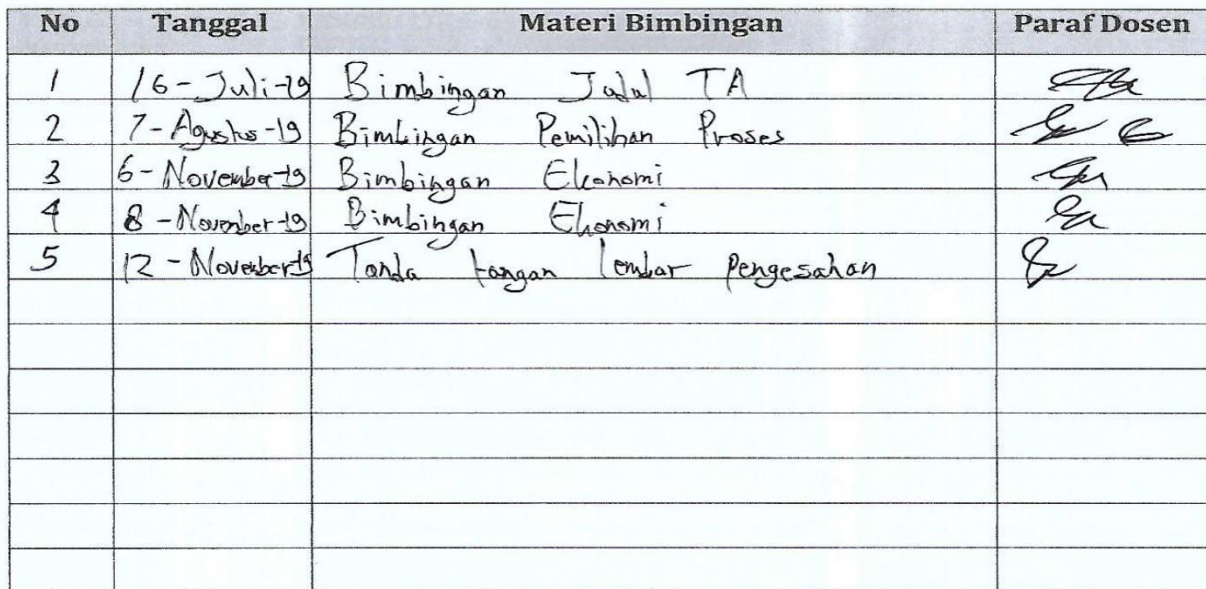 No Tanggal Materi Bimbingan Paraf Dosen
1 16-Juli-19 Bimbingan Judul TA
2 7-Agustus-19 Bimbingan Pemilihan Proses
3 6-November-19 Bimbingan Ekonomi
4 8-November-19 Bimbingan Ekonomi
5 12-November-19 Tanda tangan lembar pengesahan